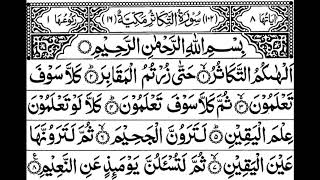 اٰيَاتُهَا ٨ (١٠٢) سُوْرَةُ التَّكَاثُرِ مَكِّيَّةٌ (١٦) رُكُوْعُهَا ١
بِسْمِ اللّٰهِ الرَّحْمٰنِ الرَّحِيْمِ
اَلْهٰىكُمُ التَّكَاثُرُ ۙ﴿۱﴾ حَتّٰى زُرْتُمُ الْمَقَابِرَ ﴿۲﴾ كَلَّا سَوْفَ
تَعْلَمُوْنَ ۙ﴿۳﴾ ثُمَّ كَلَّا سَوْفَ تَعْلَمُوْنَ ﴿۴﴾ كَلَّا لَوْ تَعْلَمُوْنَ
عِلْمَ الْيَقِيْنِ ﴿۵﴾ لَتَرَوُنَّ الْجَحِيْمَ ۙ﴿۶﴾ ثُمَّ لَتَرَوُنَّهَا
عَيْنَ الْيَقِيْنِ ۙ﴿۷﴾ ثُمَّ لَتُسْـَٔلُنَّ يَوْمَئِذٍ عَنِ النَّعِيْمِ ﴿۸﴾